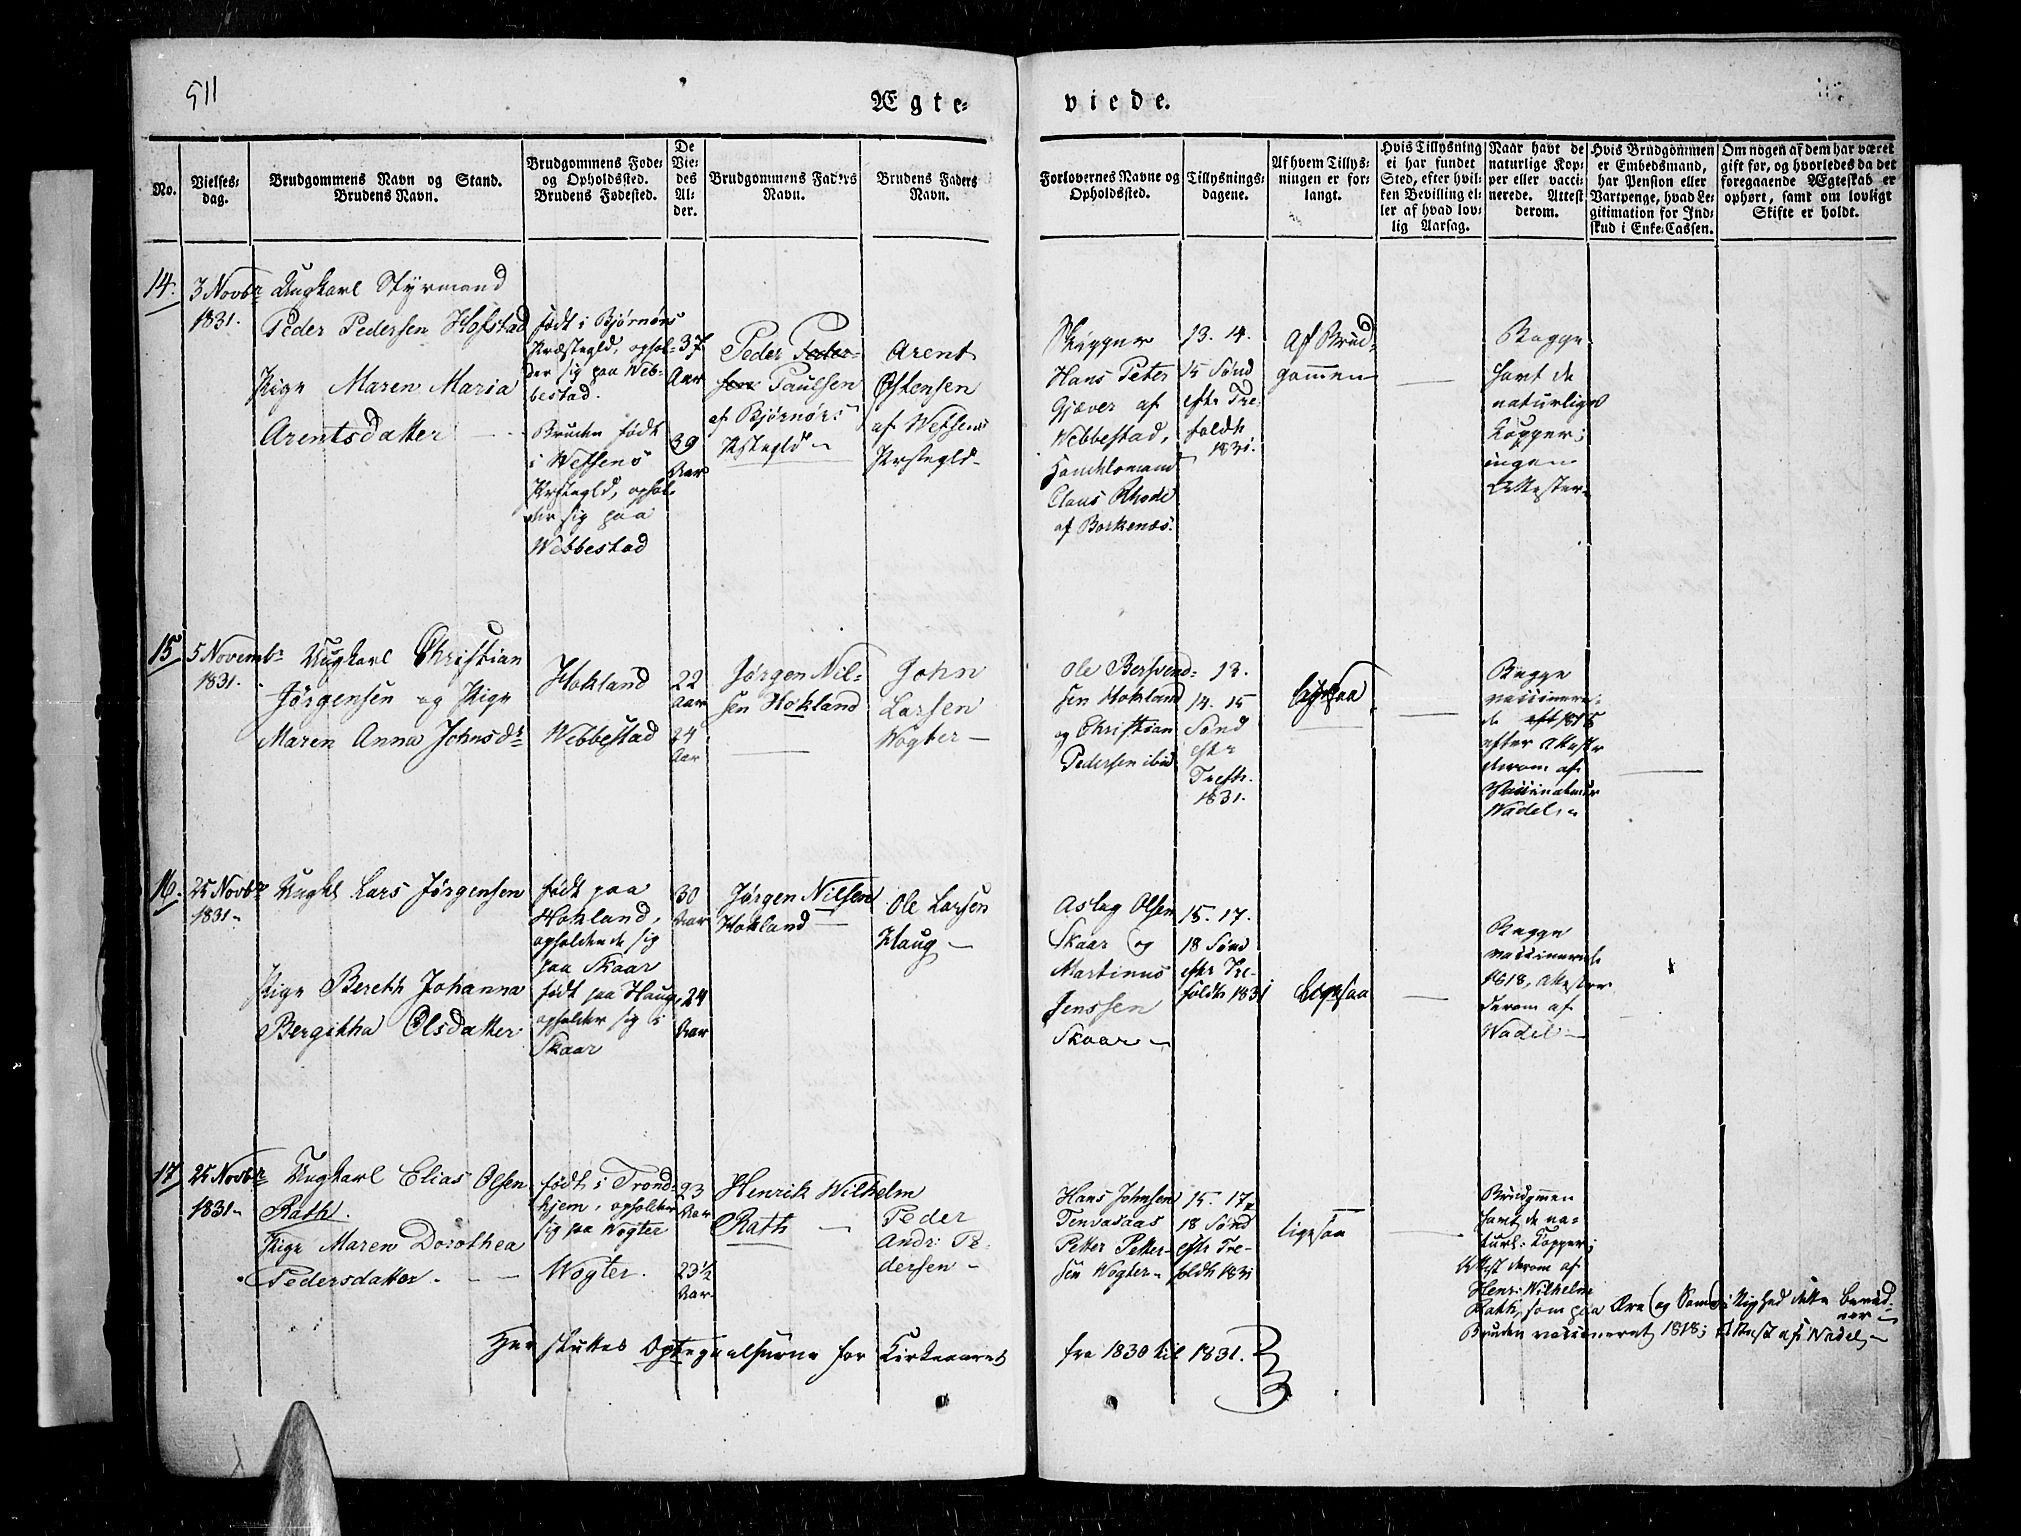 511
Ægte-
viede.
No.
Vielses-
dag.
Brudgommens Navn og Stand.
Brudens Navn.
Brudgommens Føde-
og Opholdssted.
Brudens Fødested.
De
Vie-
des
Al-
der.
Brudgommens Faders
Navn.
Brudens Faders
Navn.
Forlovernes Navne og
Opholdssted.
Tillysnings-
dagene.
Af hvem Tillys-
ningen er for-
langt.
Hvis Tillysning
ei har fundet
Sted, efter hvil-
ken Bevilling el-
ler af hvad lov-
lig Aarsag.
Naar havt de
naturlige Kop-
per eller vacci-
nerede. Attest
derom.
Hvis Brudgommen
er Embedsmand,
har Pension eller
Vartpenge, hvad Le-
gitimation for Ind-
skud i Enke-Cassen.
Om nogen af dem har været
gift før, og hvorledes da det
foregaaende Ægteskab er
ophørt, samt om lovligt
Skifte er holdt.
14.
3 Novbr
1831.
Ungkarl Styrmand
Peder Pedersen Hofstad
Pige Maren Maria
Arentsdatter
født i Bjørnørs
Præstegld, ophol-
der sig paa Web-
bestad.
Bruden født
i Wefsens
Prstegld, ophol-
der sig paa
Webbestad
37
Aar
39
Aar
Peder Peder-
sen Paulsen
af Bjørnørs
Pstegld
Arent
Østensen
af Wefsens
Prstegld
Skipper
Hans Peter
Gjæver af
Webbestad,
Handelsmand
Claus Rhode
af Borkenæs.
13. 14.
15 Sønd
eftr Tre-
foldh
1831.
Af Brud-
gommen
Begge
havt de
naturlige
Kopper;
ingen
Attester
15
5 Novembr
1831.
Ungkarl Christian
Jørgensen og Pige
Maren Anna Johnsdr
Hokland
Webbestad
22
Aar
24
Aar
Jørgen Nil-
sen Hokland
John
Larsen
Wogter
Ole Bersvend-
sen Hokland
og Christian
Pedersen ibid
13.
14. 15
Sønd
eftr
Trefh.
1831.
Ligesaa
Begge
vaccinere-
de
efter Attest
derom af
Vaccinateur
Wadel
16.
25 Novbr
1831
Ungkl Lars Jørgensen
Pige Bereth Johanna
Bergitha Olsdatter
født paa
Hokland,
opholdende sig
paa Skaar
født paa Haug,
opholder sig i
Skaar
30
Aar
24
Aar
Jørgen Nilsen
Hokland
Ole Larsen
Haug
Aslag Olsen
Skaar og
Martinus
Jenssen
Skaar
15. 17.
18 Sønd
eftr Tre-
foldh 1831
Ligesaa
Begge
vaccinerede
1818, Attester
derom af
Wadel
17
25 Novbr
1831
Ungkarl Elias Olsen
Rath.
Pige Maren Dorothea
Pedersdatter
født i Trond-
hjem, opholder
sig paa Wogter
Wogter.
23
Aar
23 1/2
Aar
Henrik Wilhelm
Rath
Peder
Andr: Pe-
dersen
Hans Johnsen
Petter Petter-
sen Wogter
15. 17
18 Sønd
eftr Tre-
foldh 1831
ligesaa
Brudgmen
havt de na-
turl: Kopper;
Attest derom af
Henr: Wilhelm
Rath, som paa Ære og Samvittighed dette bevid-
ner
Bruden vaccineret 1818; Attest af Wadel
Her sluttes Optegnelserne for Kirkeaaret
fra 1830 til 1831.